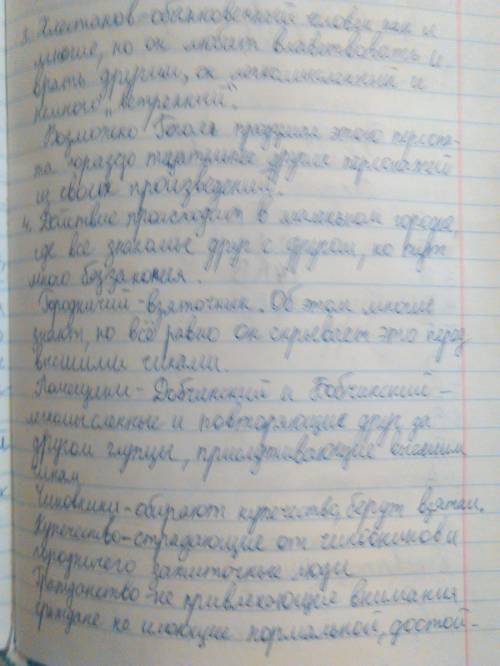 3. Хлестаков-обыкновенный человек, как и
многие, но он любит властвовать и
врать другим, он легкомысленный и
немного "ветренный".
Возможно Гоголь продумал этого персона-
жа гораздо тщательнее других персонажей
из своих произведений.
4. Действие происходит в маленьком городке,
где все знакомы друг с другом, но тут
много беззакония.
Городничий-взяточник. Об этом многие
знают, но всё равно он скрывает это перед
высшими чинами.
Помещики-Добчинский и Бобчинский-
легкомысленные и повторяющие друг за
другом глупцы, прислуживающие высшим
чинам
Чиновники-обирают купечество, берут взятки.
Купечество-страдающие от чиновников и
городничего зажиточные люди
Гражданство-не привлекающие внимания
граждане не имеющие нормальной, достой-